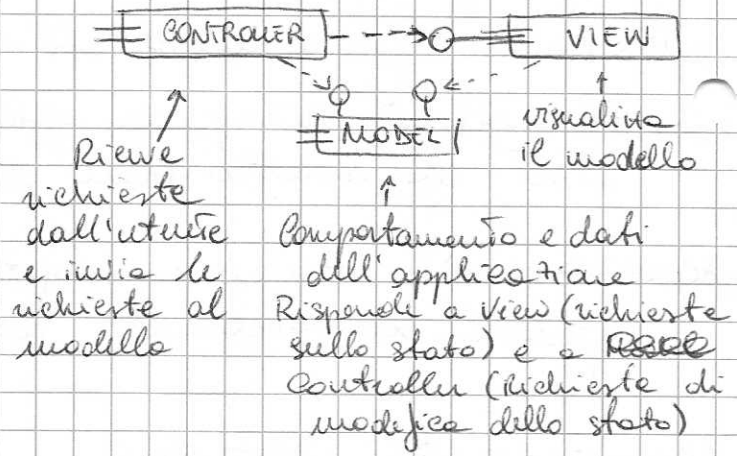 CONTROLLER
VIEW
MODEL
visualizza
il modello
Riceve
richieste
dall'utente
e invia le
richieste al
modello
Comportamento e dati
dell'applicazione
Risponde a View (richieste
sullo stato) e a
Controller (richieste di
modifica dello stato)